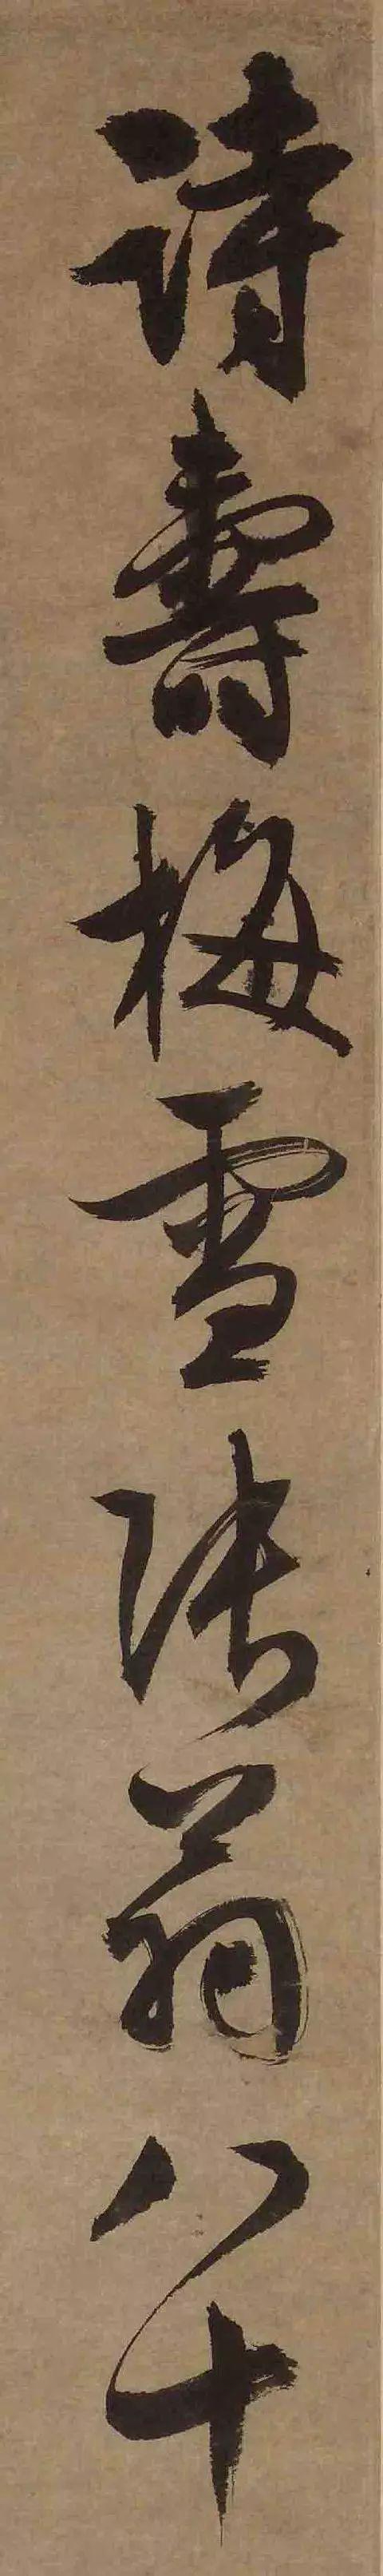 詩壽梅雪張翁八十